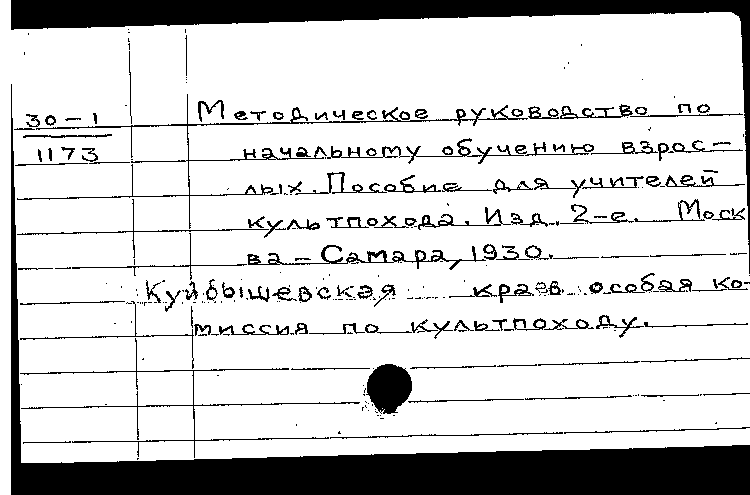 30-1
1173
Методическое руководство по
начальному обучению взрос-
лых. Пособие для учителей
культпохода. Изд. 2-е. Моск
ва - Самара, 1930.
Куйбышевская краев. особая ко-
миссия по культпоходу.